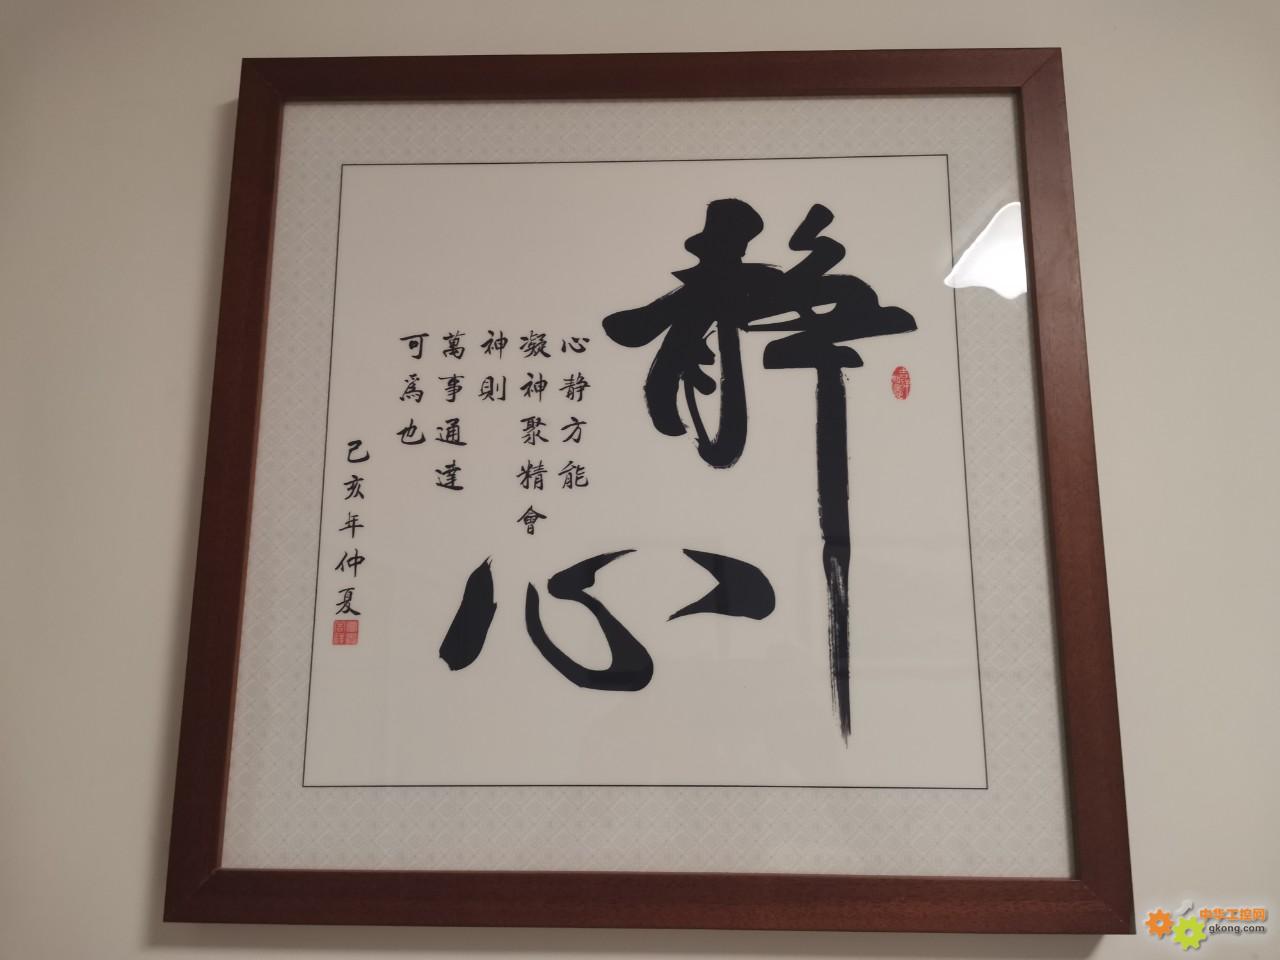 静心
心静方能
凝神聚精會
神則
萬事通達
可爲也
己亥年仲夏
中华工控网
gkong.com